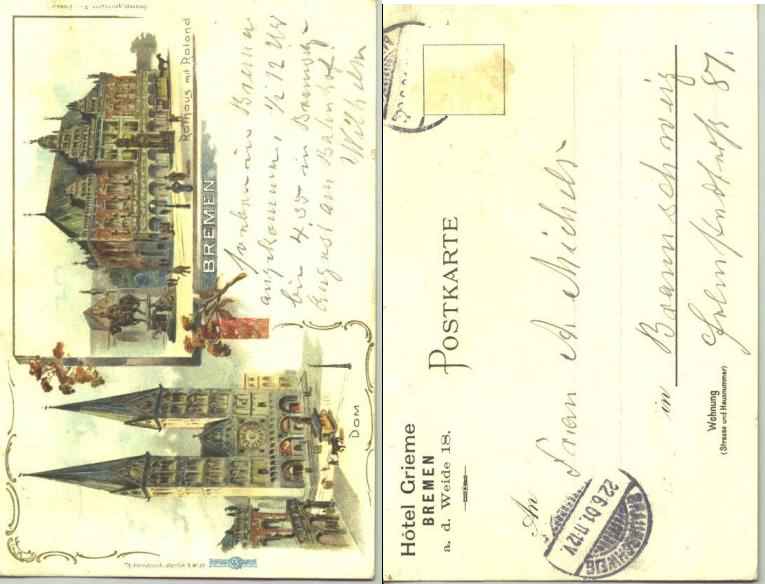 Rathaus mit Roland
BREMEN
Dom
in Bremen
angekommen, 1/2 12 Uhr
bin 4 35 in
August am Bahnhof!
Wilhelm
Hôtel Grieme
BREMEN
a. d. Weide 18.
POSTKARTE
An
Frau A Michels
in Braunschweig
Wohnung
(Strasse und Hausnummer)
Helmstedterstr 87.
BRAUNSCHWEIG
22.6.01.11-12V